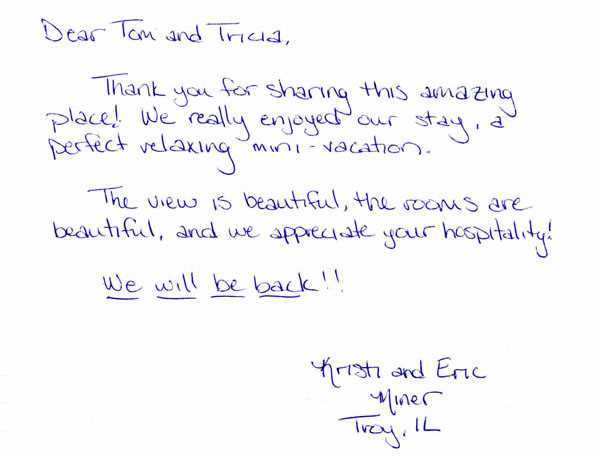 Dear Tom and Tricia,
Thank you for sharing this amazing
place! We really enjoyed our stay, a
perfect relaxing mini-vacation.
The view is beautiful, the rooms are
beautiful, and we appreciate your hospitality!
We will be back!!
Kristi and Eric
Miner
Troy, IL